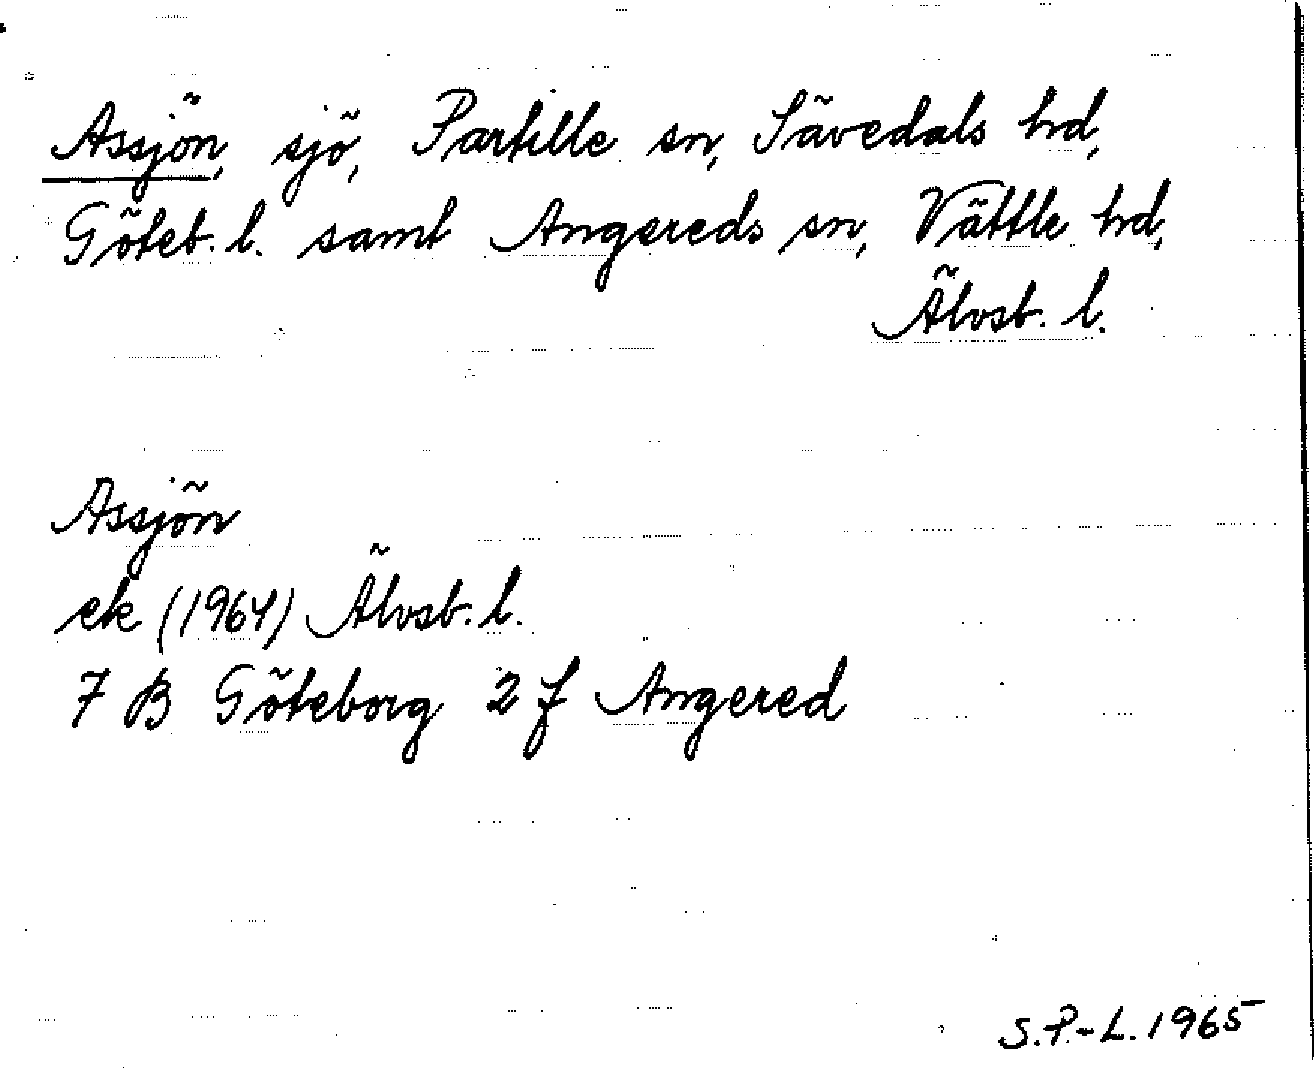 Assjön, sjö, Partille sn, Sävedals hd,
Göteb. l. samt Angereds sn, Vättle hd,
Älvsb. l.
Assjön
ek (1964) Älvsb. l.
7 B Göteborg 2 f Angered
S.P.-L. 1965